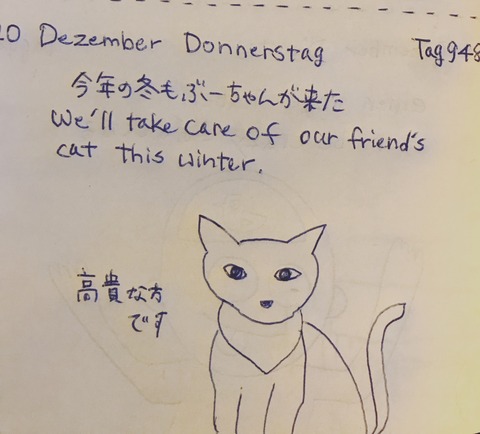 10 Dezember Donnerstag Tag 948
今年の冬もぶーちゃんが来た
We'll take care of our friend's
cat this winter.
高貴な方
です